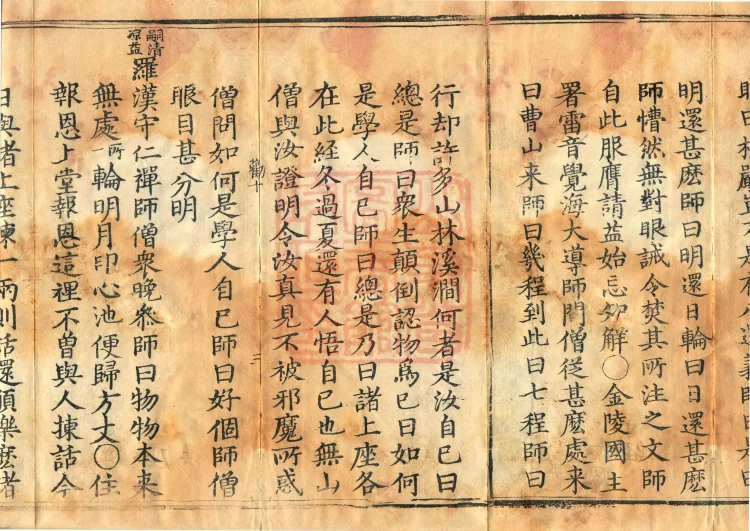 明還甚麽師曰明還日輪曰日還甚麽
師懵然無對眼誡令焚其所注之文師
自此服膺請益始忘知解〇金陵國主
署雷音覺海大導師問僧從甚麽處来
曰曹山来師曰幾程到此曰七程師曰
行却許多山林溪澗何者是汝自己曰
總是師曰衆生顛倒認物爲己曰如何
是學人自己師曰總是乃曰諸上座各
在此經冬過夏還有人悟自己也無山
僧與汝證明令汝真見不被邪魔所惑
勸十 三
僧問如何是學人自己師曰好個師僧
眼目甚分明
嗣清凉益
羅漢守仁禪師僧衆晚叅師曰物物本来
無處所一輪明月印心池便歸方丈〇住
報恩上堂報恩這裡不曽與人揀話今